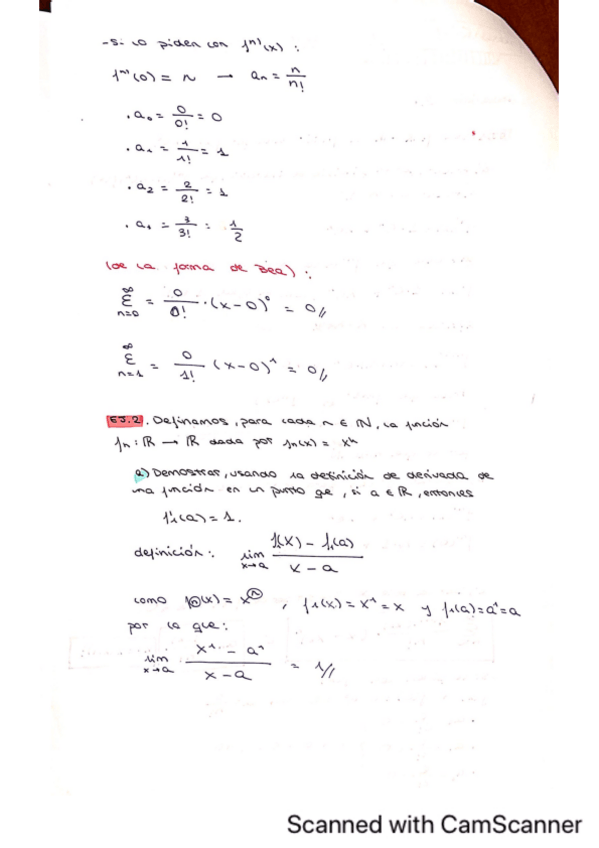 - Si lo piden con fⁿ⁾(x) :
fⁿ⁾(0) = n → aₙ = n/n!
· a₀ = 0/0! = 0
· a₁ = 1/1! = 1
· a₂ = 2/2! = 1
· a₊ = 3/3! = 1/2
(de la forma de Bea) :
∞Σn=0 = 0/0! · (x-0)⁰ = 0//
∞Σn=1 = 0/1! (x-0)¹ = 0//
EJ.2. Definamos, para cada n ∈ ℕ, la función
fₙ : ℝ → ℝ dada por fₙ(x) = xⁿ
a) Demostrar, usando la definición de derivada de
una función en un punto qe, si a ∈ ℝ, entonces
f'₁(a) = 1.
definición : lim x→a f₁(x) - f₁(a) / x - a
como fₙ(x) = xⁿ , f₁(x) = x¹ = x y f₁(a) = a¹ = a
por lo que:
lim x→a x¹ - a¹ / x - a = 1//
Scanned with CamScanner